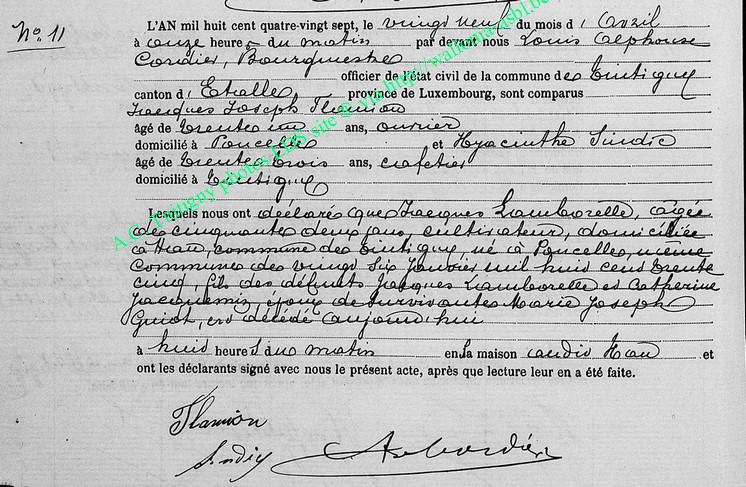 No 11
L'AN mil huit cent quatre-vingt sept, le vingt neuf du mois d'Avril
à onze heures du matin par devant nous Louis Alphonse
Cordier, Bourgmestre
officier de l'état civil de la commune de Tintigny
canton d'Etalle, province de Luxembourg, sont comparus
Jacques Joseph Flamion
âgé de trente un ans, ouvrier
domicilié à Poncelle et Hyacinthe Sindic
âgé de trente trois ans, cafetier
domicilié à Tintigny
Lesquels nous ont déclaré que Jacques Lamborelle, âgé
de cinquante deux ans, cultivateur, domicilié
à Han, commune de Tintigny, né à Poncelle, même
commune le vingt six Janvier mil huit cent trente
cinq, fils des défunts Jacques Lamborelle et Catherine
Jacquemin, époux de survivante Marie Joseph
Guiot, est décédé aujourd'hui
à huit heures du matin en sa maison audit Han et
ont les déclarants signé avec nous le présent acte, après que lecture leur en a été faite.
Flamion
Sindic
A Cordier
A.C. Tintigny photos LDS site @ via http://wallonia-asbl.be